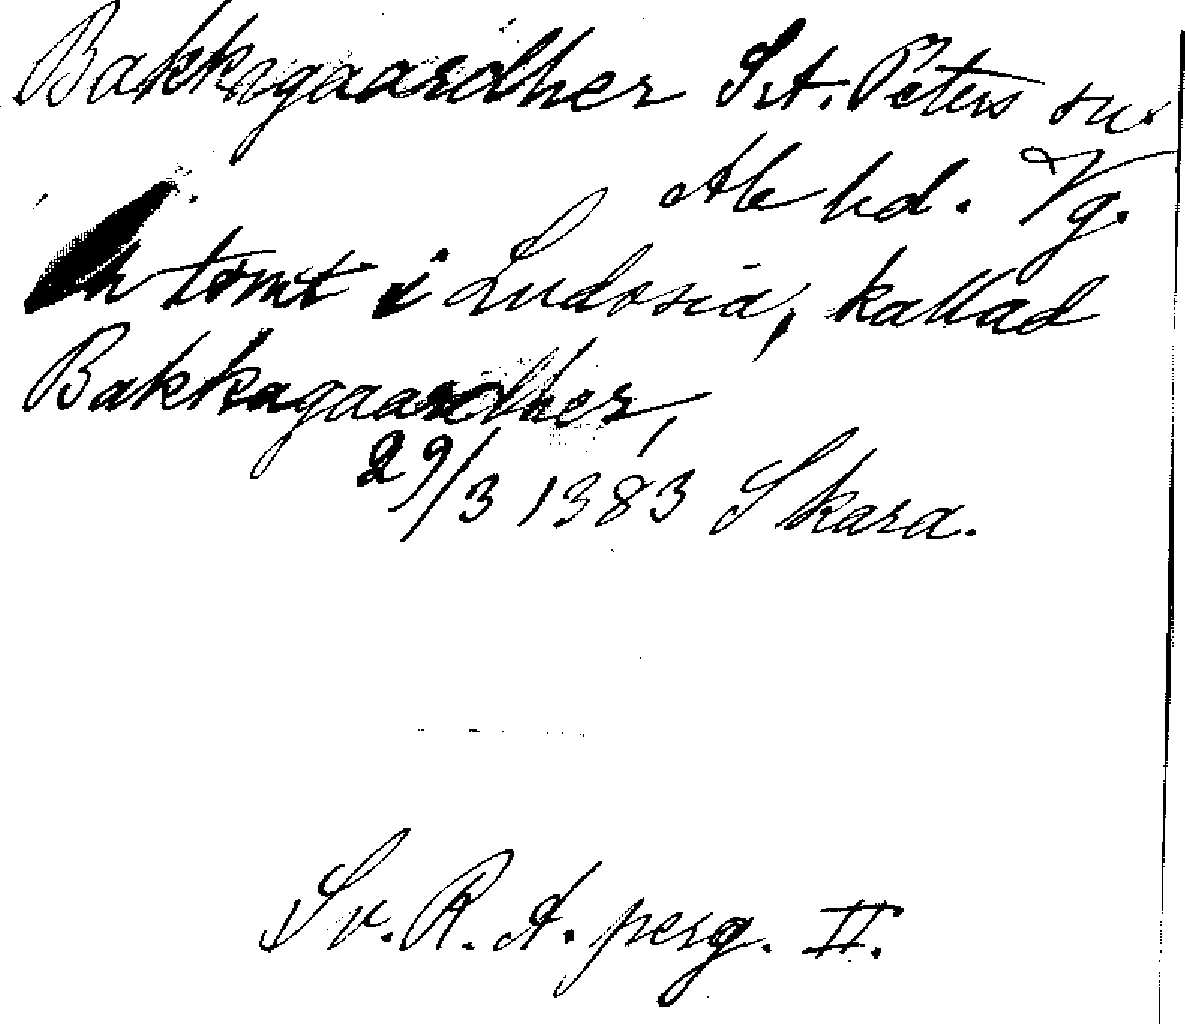 Bakkagaardher S:t. Peters sn.
Ale hd. Vg.
En tomt i Ludosia, kallad
Bakkagaardher,
29/3 1383 Skara.
Sv. R. A. perg. II.